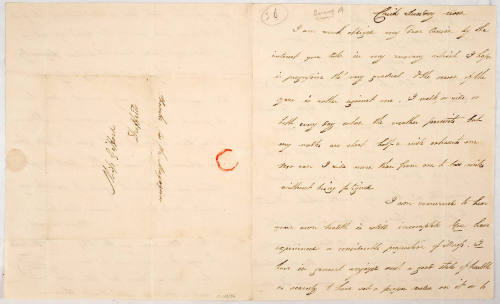 56
I am much obliged my dear Cousin by the
interest you take in my recovery which I hope
is progressive tho' very gradual. The season of the
year is rather against me. I walk or ride, or
both, every day when the weather permits but
my walks are short half a mile exhausts me
nor can I ride more than from one to two miles
without being fatigued.
I am concerned to hear
your own health is still incomplete You have
experienced a considerable proportion of illness. I
have in general enjoyed such a good state of health
as scarcely to have set a proper value on it or to
Miss
Suffield